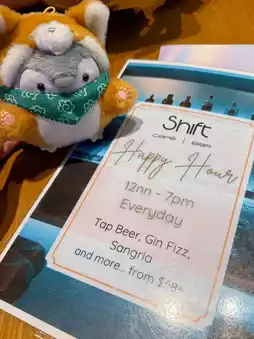 Shift
CAFE | BAR
Happy Hour
12nn - 7pm
Everyday
Tap Beer, Gin Fizz,
Sangria
and more... from $68+